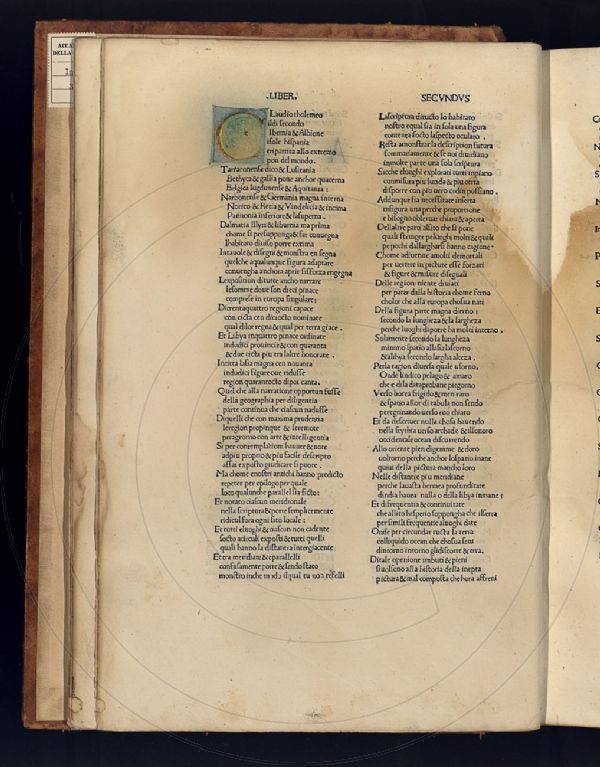 .LIBER.
SECVNDVS
Laudio tholemeo
Ibernia & Albione
isole hispania
tripartita allo extremo
pon del mondo.
Tarraconense dico & Lusitania
Bethyca & gallia pone anchor quaterna
Belgica lugdunense & Aquitania:
Narbonense & Germania magna interna
Norico & Retia & Vindelicia & incima
Pannonia inferiore & lasuperna.
Dalmatia Illyri & liburnia ma prima
chome si presupponga & sia conuegna
lhabitato diuiso porre extima
In tauole & disegni & monstra en segna
quelche aqualunque figura adaptare
conuengha anchora aprir sisforza engegna
Lexposition ditutte ancho narrare
comprese in europa singulare;
Di trentaquattro regioni capace
con cista cen diciocto nominate
qual dilor regna & qual per terra giace.
Et Libya inquattro pinace ordinate
indodici prouincie & con quaranta
& due cicta piu tra laltre honorate.
Intera lasia magna con nouanta
indodici figure ove ridusse
region quarantocto dipoi canta.
Quel che alla narratione opportun fusse
della geographia per diligentia
parte continua che ciascun radusse
Di quelli che con maxima prudentia
le region propinque & le remote
peragrorno con arte & intelligentia
Si per contemplationi hauute & note
adpiu proprio & piu facile descripto
assai exposto giudicare si puote.
Ma chome enostri antichi hanno predicto
repeter per epilogo per quale
loco qualunche parallel sia ficto:
Et notato ciascun meridionale
nella scriptura & pone semplicemente
ridicul fora ogni sito locale:
Et tutti eluoghi & ciascun non cadente
socto acirculi exposti & tutti quelli
quali hanno la distantia intergiacente
Et tra meridiani & paralleli
confusamente porre & sendo stato
monstro inche modo
La scriptura di tucto lo habitato
nostro equal sia in sola una figura
contenga socto laspecto oculato.
Resta amonstrar la description futura
sommariamente & se noi diuidiano
in molte parte una sola scriptura
Sicche eluoghi explorati tutti inpiano
con misura piu lucida & piu certa
disporre con piu uero ordin possiano.
Adunque sia necessitate inserta
in figura una perche proportione
e bilogno obseruar chiara & aperta
Dellaltre parti alsito che si pone
quali stringer pe luoghi molti & quali
pe pochi dallargharsi hanno cagione.
Chome aduenne amolti demortali
per uertere in picture esse forzati
& figure & misure diseguali
Delle region niente diuiati
per parer dalla historia chome ferno
choloro che alla europa chosua nati
Della figura parte magna dierno;
secondo la lungheza & la largheza
perche luoghi da porre ha molti interno.
Solamente secondo la lungheza
minimo spatio alla sia lasciorno
& alibya secondo largha alteza.
Per la ragion diuersa quale usorno,
Onde lindico pelago & arturo
che e dila dataprobane piegorno
Verso borea frigido & men raro
& spatio allor di tabula non sendo
peregrinando uerso eoo chiaro
Et da descriuer nulla chosa hauendo
nella scythia uerso archede & illonoro
occidentale ocean discurrendo
Allo oriente pien digemme & doro
uoltorno perche anchor lospatio inane
quiui della pictura mancho loro
Nelle distantie piu meridiane
perche lausta hemera prostrenitare
dindia haura nulla o della libya inmane:
Et disequentia & continuitate
che allito hesperio soppongha che ilserra
per simili frequente aluoghi date
Onde per circundar tucta la terra
collliquido ocean che chosua senti
dintorno intorno glidiscorre & erra,
Di tale openione imbuti & pieni
siuolseno alla historia della inepta
pictura & mal composta che hora affreni